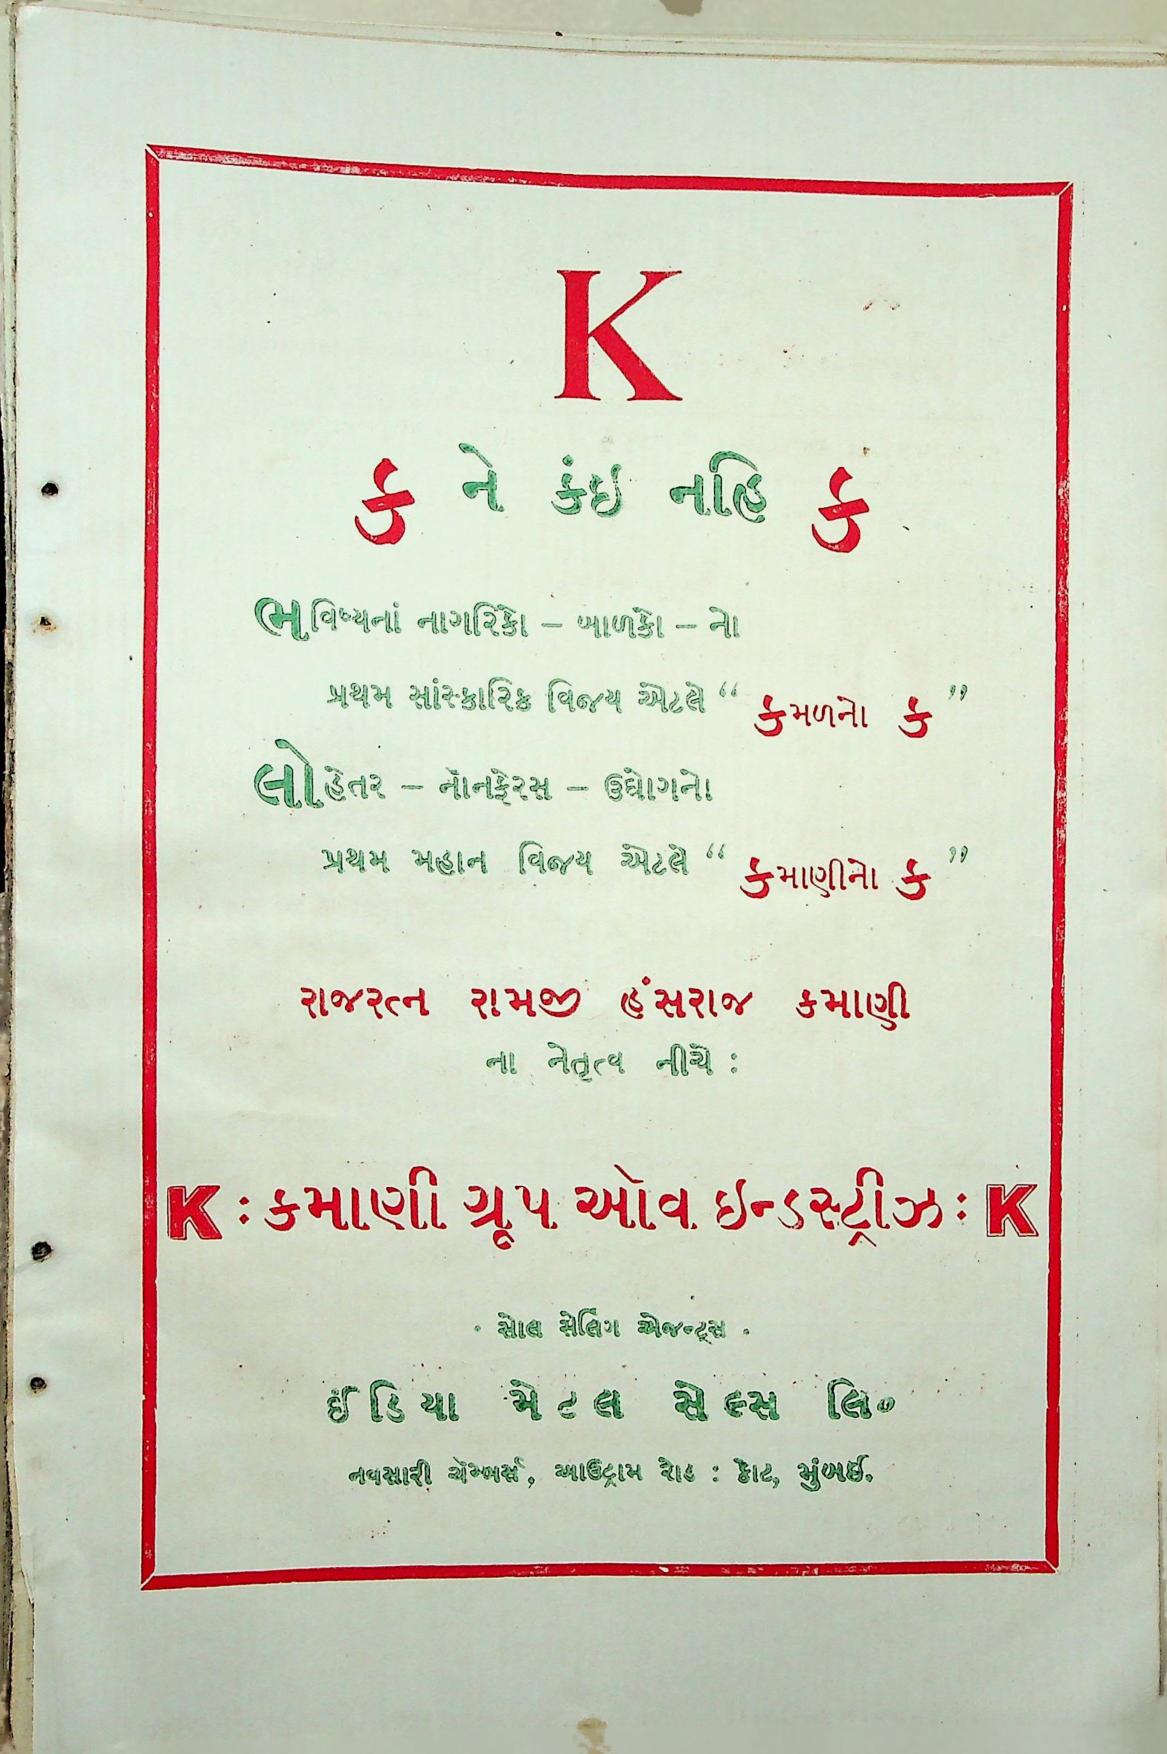 K
ક ને કંઇ નહિ ક
ભવિષ્યનાં નાગરિકો – બાળકો – નો
પ્રથમ સાંસ્કારિક વિજય એટલે “ કમળનો ક ”
લોહેતર – નૉનફેરસ – ઉદ્યોગનો
પ્રથમ મહાન વિજય એટલે “ કમાણીનો ક ”
રાજરત્ન રામજી હંસરાજ કમાણી
ના નેતૃત્વ નીચે :
K : કમાણી ગ્રૂપ ઓવ ઇન્ડસ્ટ્રીઝ : K
· સોલ સેલિંગ એજન્ટ્સ ·
ઈંડિયા મેટલ સેલ્સ લિ૦
નવસારી ચૅમ્બર્સ, આઉટ્રામ રોડ : કોટ, મુંબઈ.